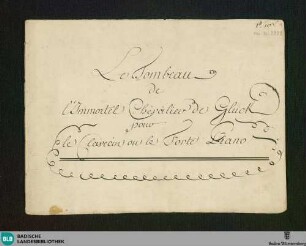 Le Tombeau
de
l'Immortel Chevalier de Gluck
pour
le Clavecin ou le Forte Piano
BLB BADISCHE
LANDESBIBLIOTHEK
Baden-Württemberg